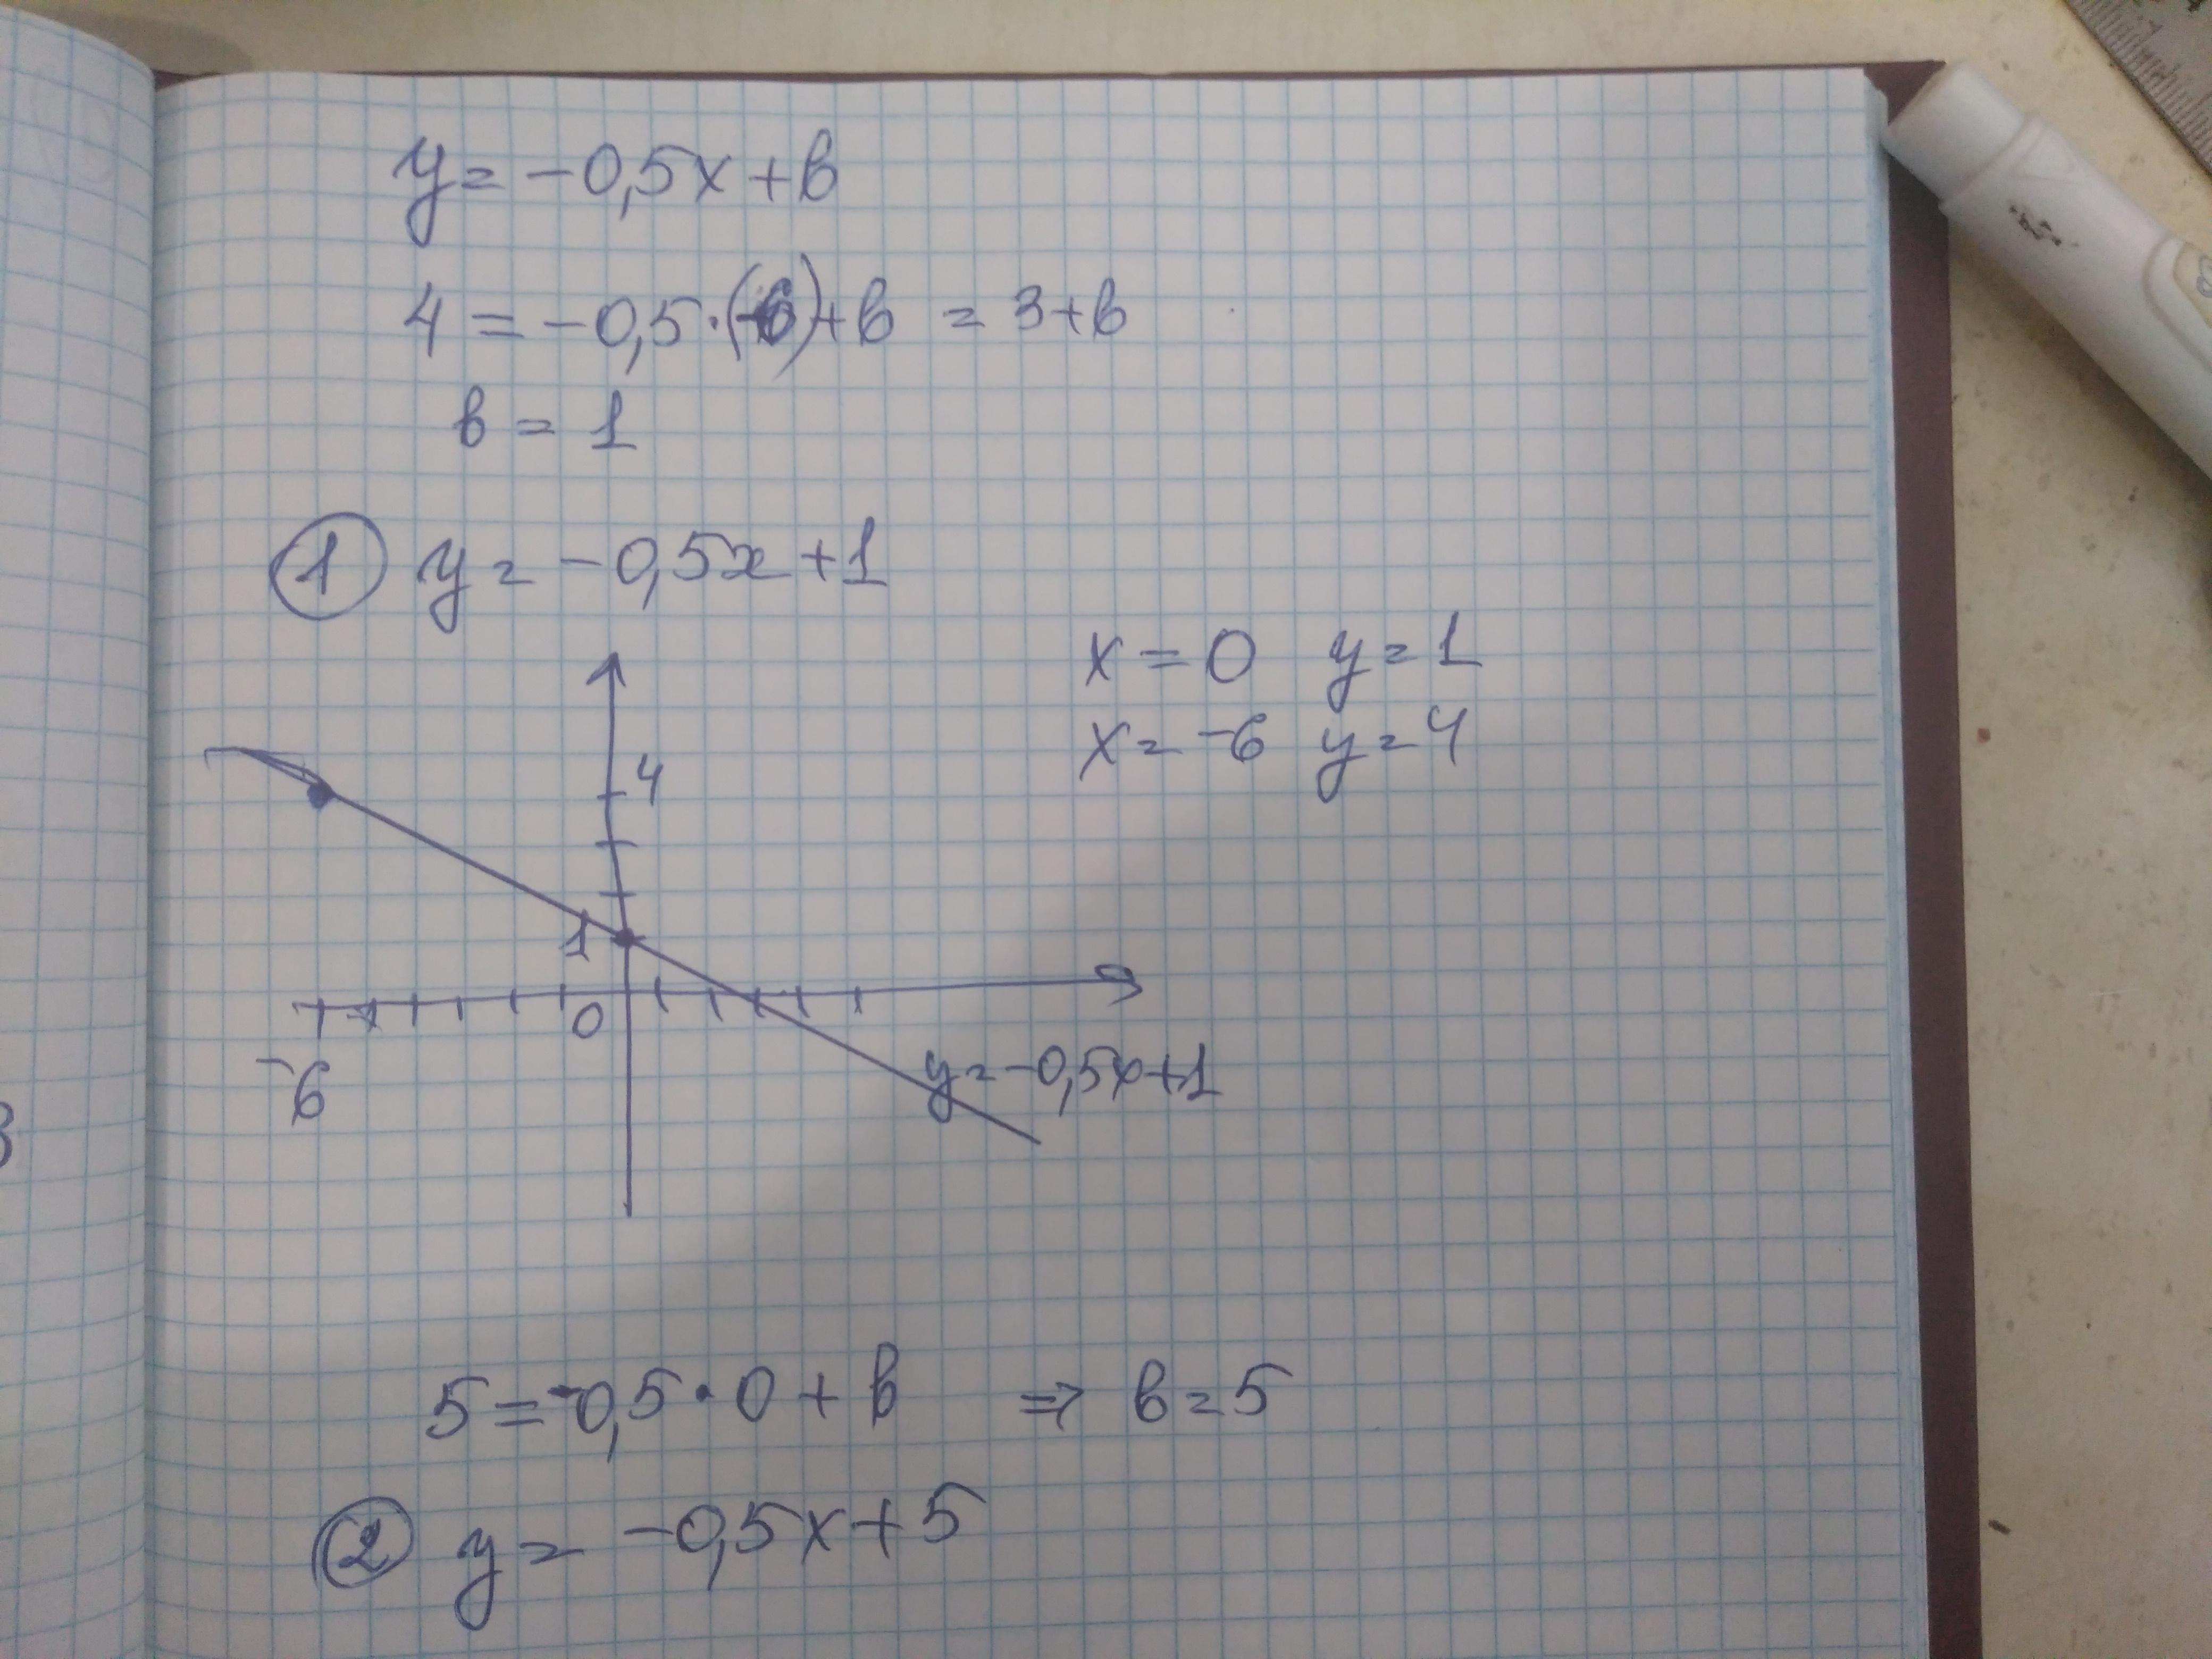 y = -0,5x + b
4 = -0,5·(-6)+b = 3+b
b = 1
① y = -0,5x + 1
x = 0 y = 1
x = -6 y = 4
4
1
0
-6
y = -0,5x+1
5 = -0,5·0 + b ⇒ b = 5
② y = -0,5x + 5